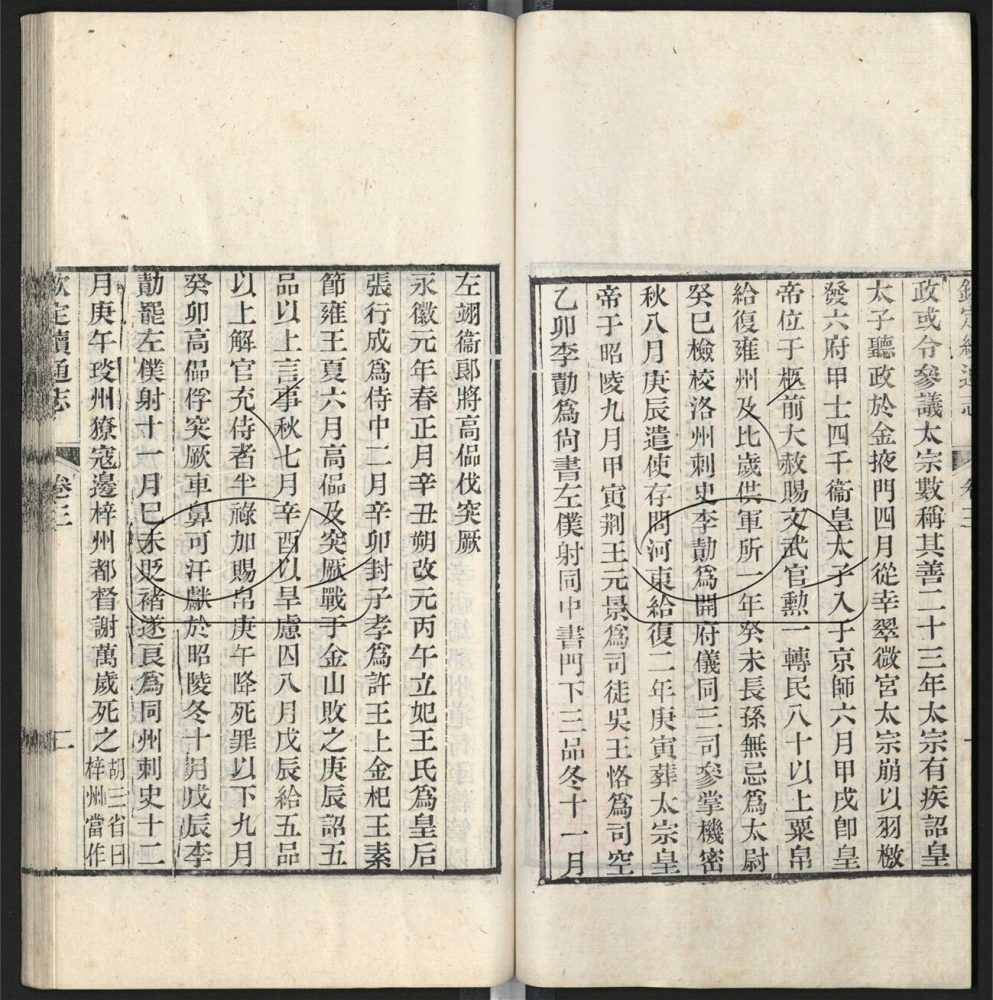 欽定續通志
卷三
政或令參議太宗數稱其善二十三年太宗有疾詔皇
太子聽政於金掖門四月從幸翠微宮太宗崩以羽檄
發六府甲士四千衞皇太子入于京師六月甲戌卽皇
帝位于柩前大赦賜文武官勲一轉民八十以上粟帛
給復雍州及比歲供軍所一年癸未長孫無忌爲太尉
癸巳檢校洛州刺史李勣爲開府儀同三司參掌機密
秋八月庚辰遣使存問河東給復二年庚寅葬太宗皇
帝于昭陵九月甲寅荆王元景爲司徒吳王恪爲司空
乙卯李勣爲尚書左僕射同中書門下三品冬十一月
左翊衞郎將高偘伐突厥
永徽元年春正月辛丑朔改元丙午立妃王氏爲皇后
張行成爲侍中二月辛卯封子孝爲許王上金杞王素
節雍王夏六月高偘及突厥戰于金山敗之庚辰詔五
品以上言事秋七月辛酉以旱慮囚八月戊辰給五品
以上解官充侍者半祿加賜帛庚午降死罪以下九月
癸卯高偘俘突厥車鼻可汗獻於昭陵冬十月戊辰李
勣罷左僕射十一月己未貶褚遂良爲同州刺史十二
月庚午琰州獠寇邊梓州都督謝萬歲死之胡三省曰
梓州當作
欽定續通志
卷三
二